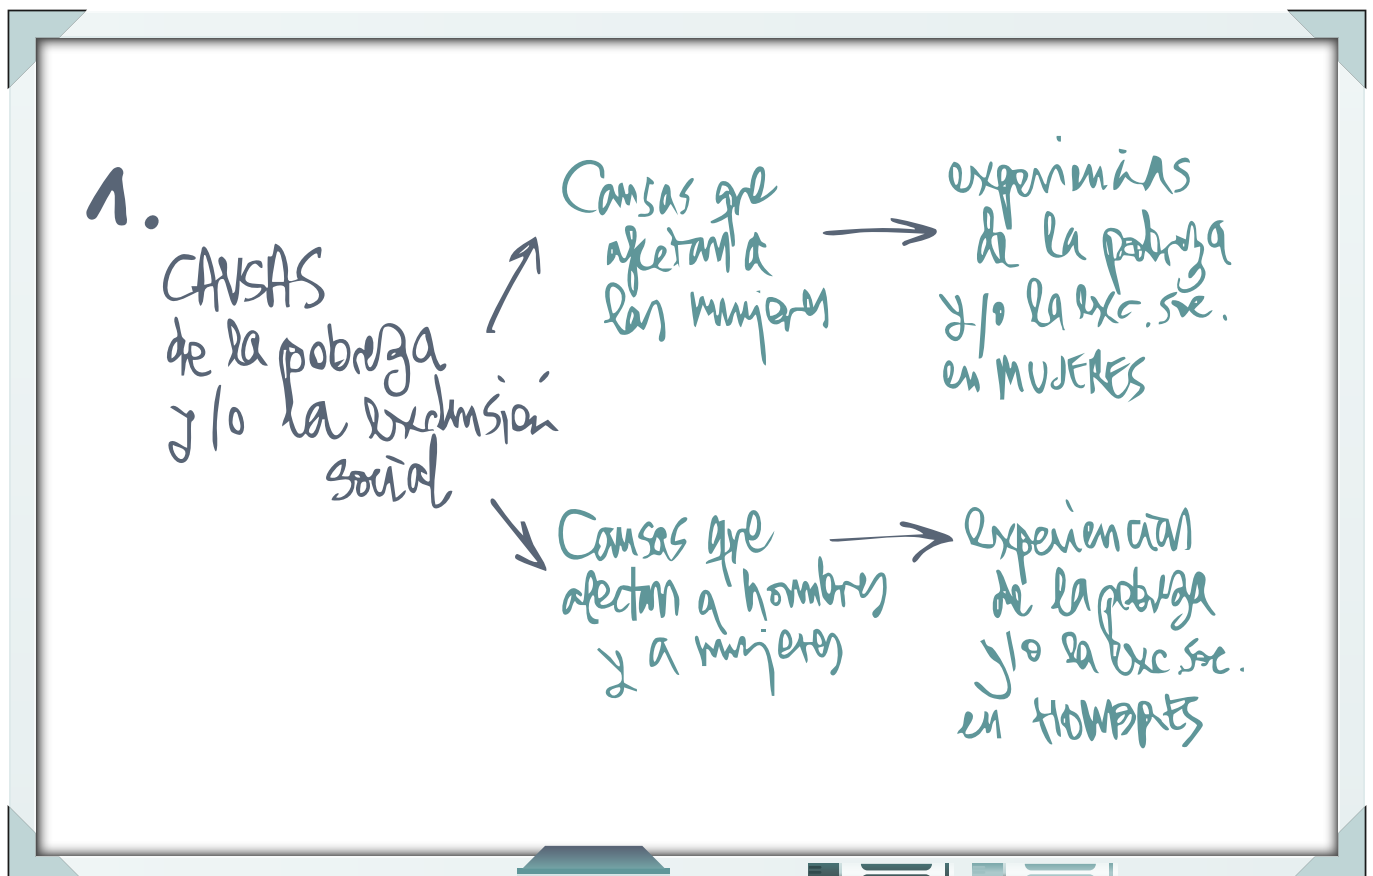 1.
CAUSAS
de la pobreza
y/o la exclusión
social
Causas que
afectan a
las mujeres
experiencias
de la pobreza
y/o la exc. soc.
en MUJERES
Causas que
afectan a hombres
y a mujeres
experiencias
de la pobreza
y/o la exc. soc.
en HOMBRES